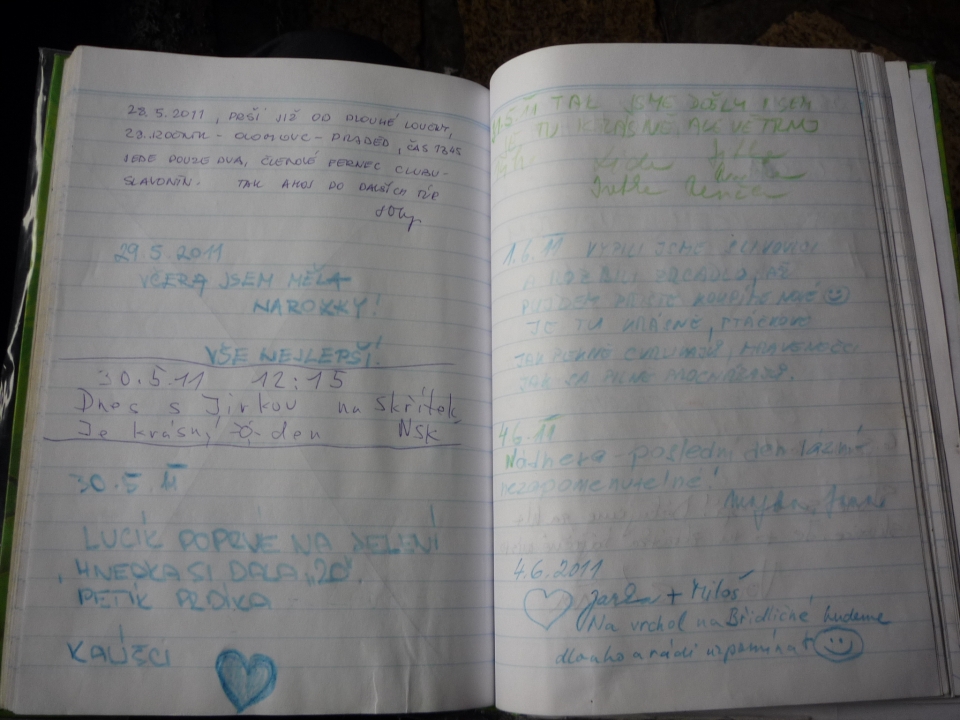 28.5.2011, PRŠÍ JIŽ OD DLOUHÉ LOUČKY,
OLOMOUC - PRADĚD, ČAS 1345
JEDE POUZE DVA, ČLENOVÉ FERNEC CLUBU -
SLAVONÍN. TAK AHOJ DO DALŠÍCH TÚR
29.5.2011
VČERA JSEM MĚLA
NAROZKY!
VŠE NEJLEPŠÍ!
30.5.11 12:15
Dnes s Jirkou na Skřítek
Je krásný den NSK
30.5.11
LUCÍK POPRVÉ NA JELENÍ
HNEDKA SI DALA „20".
PETÍK PRĎKA
KALIŠCI
TAK JSME DOŠLY I SEM
JE TU KRÁSNĚ ALE VĚTRNO
1.6.11 VYPILI JSME SLIVOVICI
A ROZBILI ZRCADLO, AŽ
PUJDEM PŘÍŠTĚ KOUPÍME NOVÉ
JE TU KRÁSNĚ, PTÁČKOVÉ
JAK PĚKNĚ CVRLIKAJÍ, MRAVENEČCI
JAK SA PILNĚ PROCHÁZAJÍ.
4.6.11
Nádhera - poslední den lázně
nezapomenutelné!
4.6.2011
Jarka + Miloš
Na vrchol na Břidličné budeme
dlouho a rádi vzpomínat